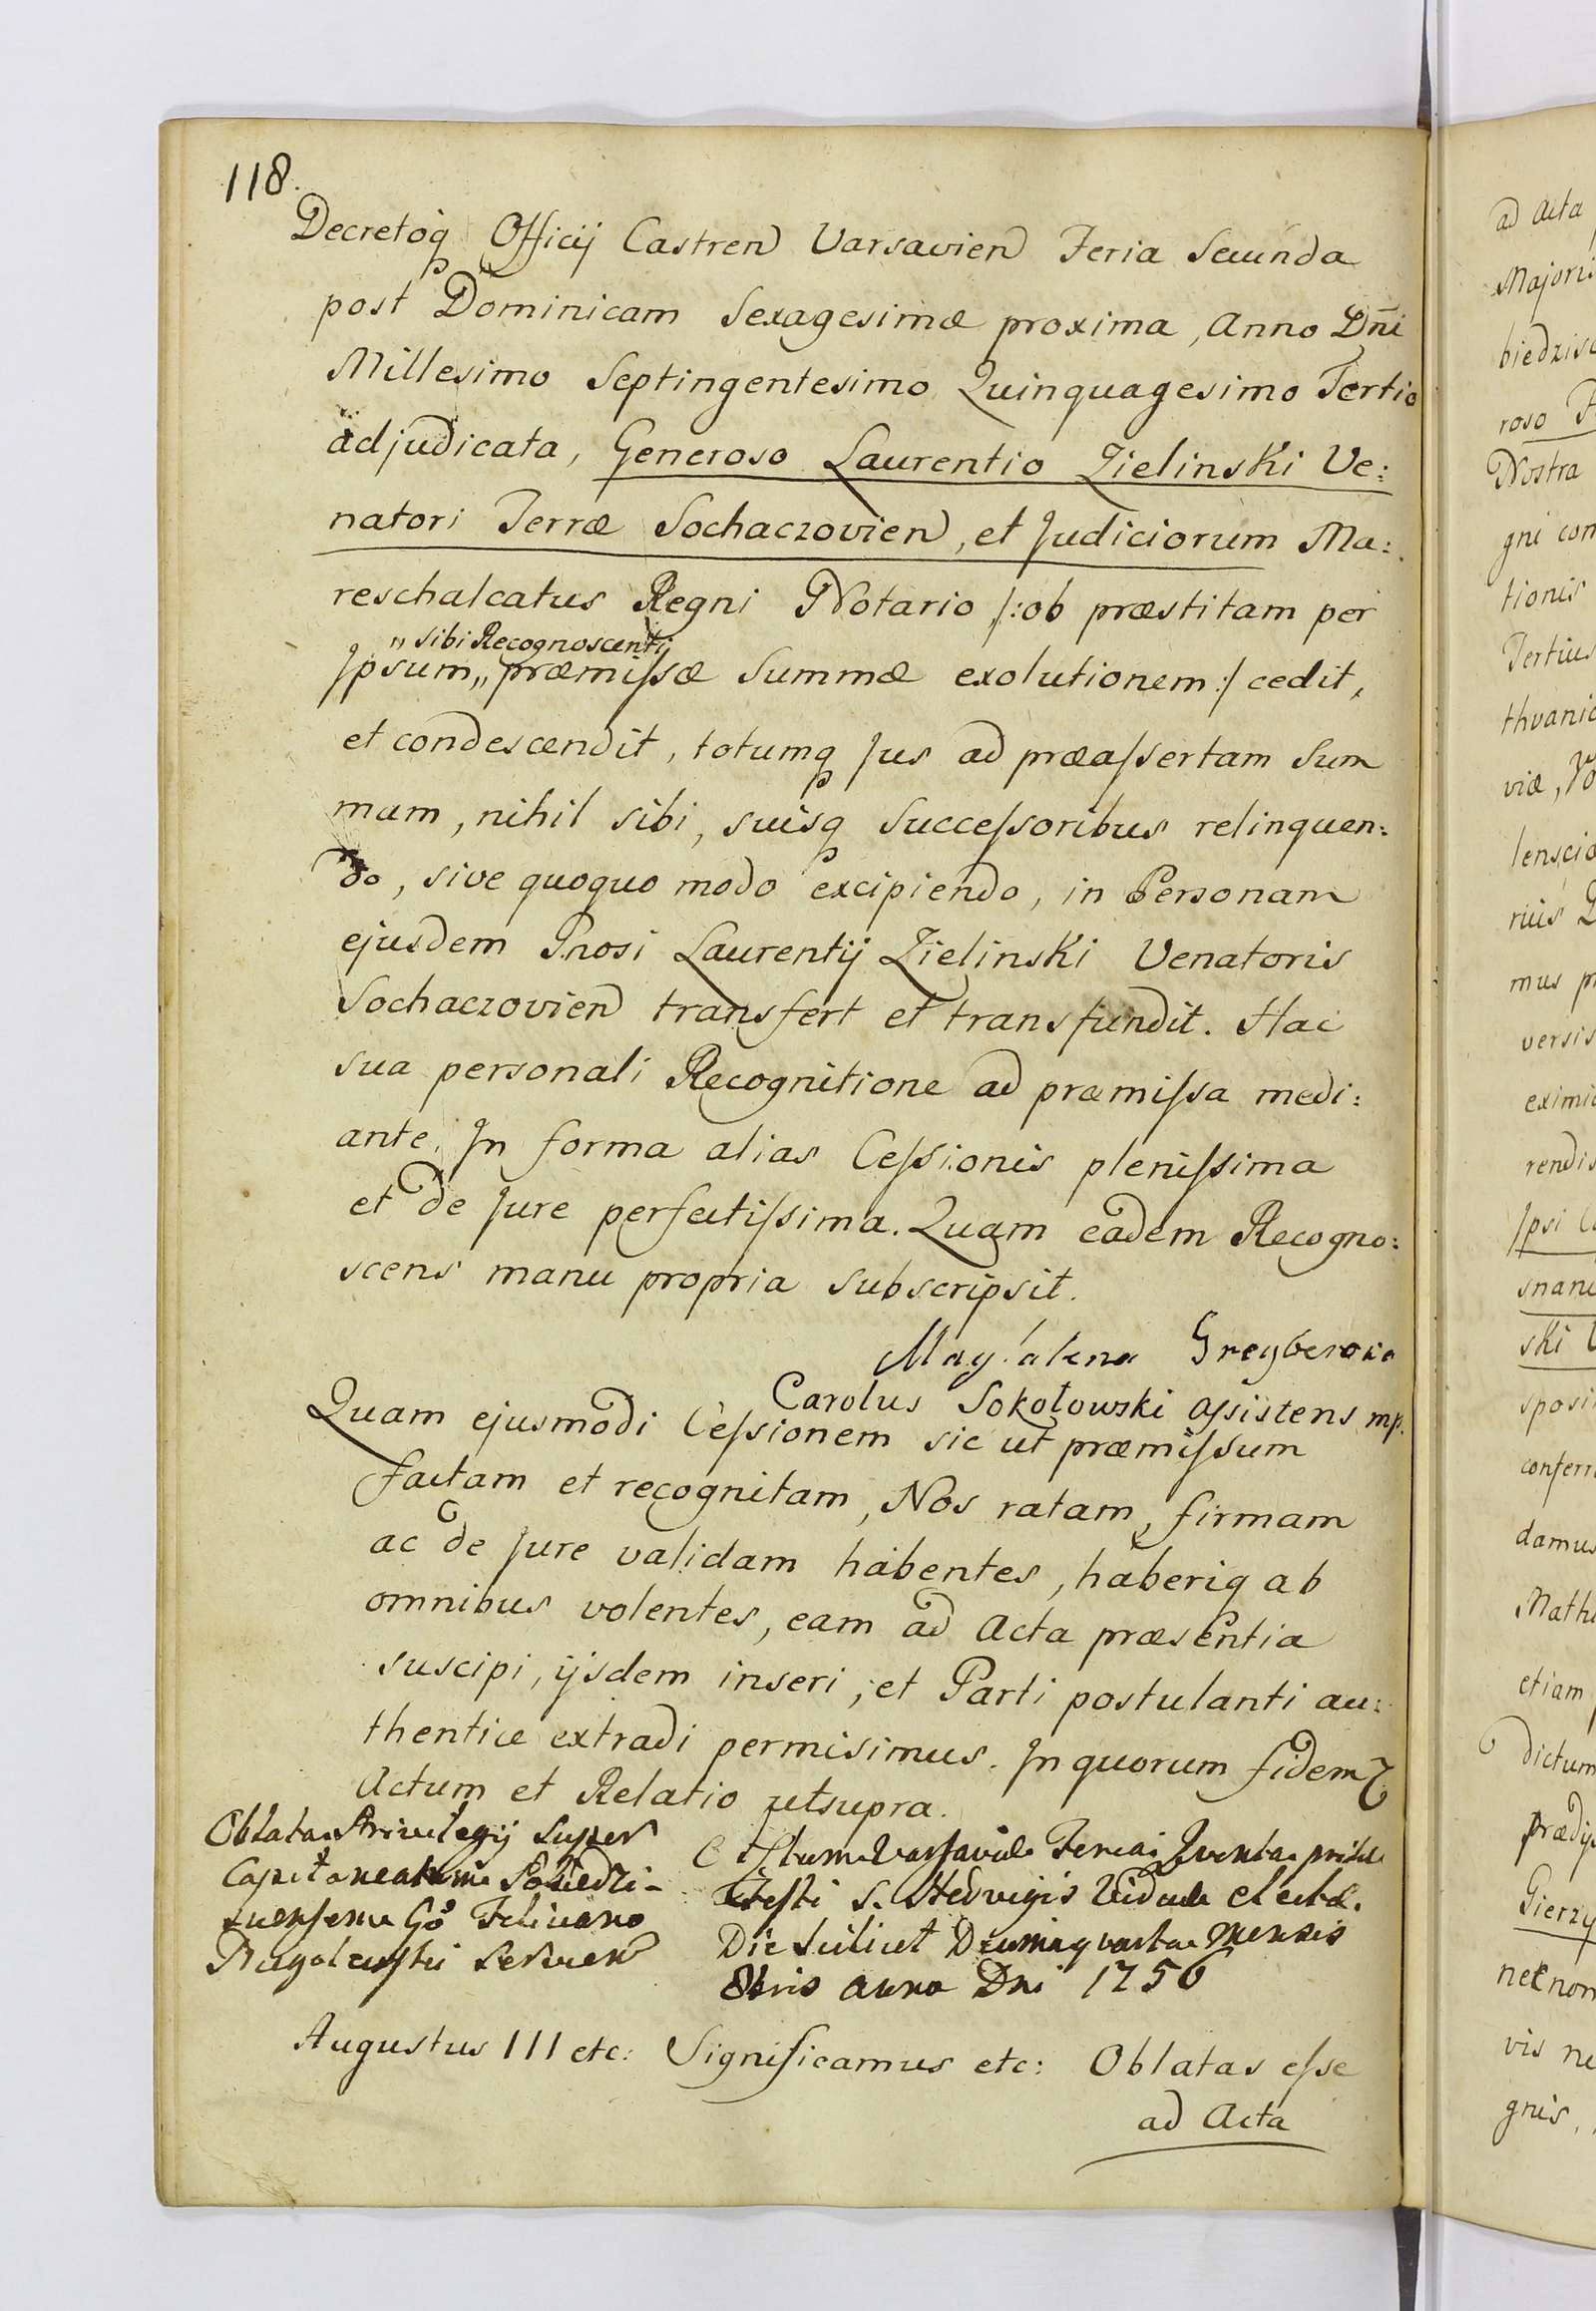 118.
Decretoq Officij Castren Varsavien Feria Secunda
post Dominicam Sexagesimæ proxima, Anno Dñi
Millesimo Septingentesimo Quinquagesimo Tertio
adjudicata, Generoso Laurentio Zielinski Ve:
natori Terræ Sochaczovien, et Judiciorum Ma:
reschalcatus Regni Notario /:ob præstitam per
„ sibi Recognoscenti
Ipsum„ præmissæ Summæ exolutionem:/ cedit,
et condescendit, totumq Jus ad præassertam Sum
mam, nihil sibi, suisq Successoribus relinquen:
do, sive quoquo modo excipiendo, in Personam
ejusdem Gnosi Laurentij Zielinski Venatoris
Sochaczovien transfert et transfundit. Hac
sua personali Recognitione ad præmissa medi:
ante. In forma alias Cessionis plenissima
et de Jure perfectissima. Quam eadem Recogno:
scens manu propria subscripsit.
Magdalena Greyberowa
Carolus Sokołowski assistens mp.
Quam ejusmodi Cessionem sic ut præmissum
factam et recognitam, Nos ratam, firmam
ac de Jure validam habentes, haberiq ab
omnibus volentes, eam ad Acta præsentia
suscipi, ijsdem inseri, et Parti postulanti au:
thentice extradi permisimus. In quorum fidem
Actum et Relatio utsupra.
Oblata Privilegij super
Capitaneatum
Go Feliciano
Servien
Actum Varsaviæ Feria Quinta pridie
Festi S. Hedvigis Viduæ Electæ.
Die scilicet Decimaqvarta Mensis
8bris anno Dni 1756
Augustus III etc: Significamus etc: Oblatas esse
ad Acta
ad Acta
Majori
biedzisc
roso
Nostra
gni con
tionis
Tertius
thvanic
viæ,
lenscio
rius
mus pr
versis
eximi
rendis
Ipsi
snani
ski
sposi
conferr
damus
Mathi
etiam
dictum
prædi
Gierzy
necnon
vis ne
gnis,